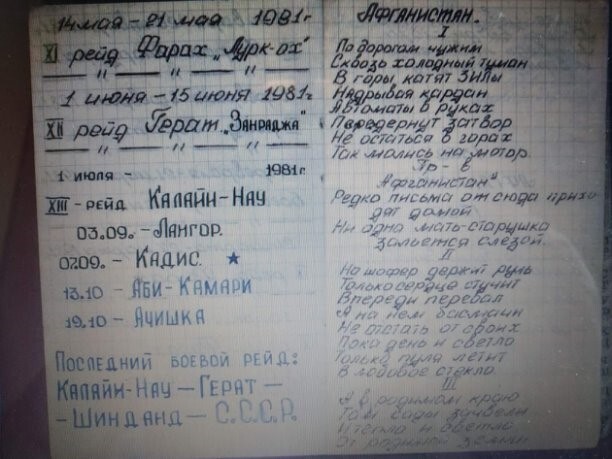 14 мая – 21 мая 1981г
XI рейд Фарах „Лурк-ох"
— „ — „ —
1 июня – 15 июня 1981г
XII рейд Герат „Занраджа"
— „ — „ —
1 июля – 1981г.
XIII – рейд Калайи-Нау
03.09. – Лангор.
07.09. – Кадис. ★
13.10 – Аби-Камари
19.10 – Ачишка
Последний боевой рейд:
Калайи-Нау – Герат –
– Шинданд – С.С.С.Р.
Афганистан.
I
По дорогам чужим
Сквозь холодный туман
В горы катят ЗИЛы
Надрывая кардан
Автоматы в руках
Передернут затвор
Не остаться в горах
Так молись на мотор.
Пр – в
Афганистан"
Редко письма отсюда прихо-
дят домой
Ни одна мать-старушка
зальется слезой.
II
На шофер держит руль
Только сердце стучит
Впереди перевал
А на нем басмачи
Не отстать от своих
Пока день и светло
Только пуля летит
В лобовое стекло.
III
А в родимом краю
Там сады зацвели
И тепло и светло
От родимой земли